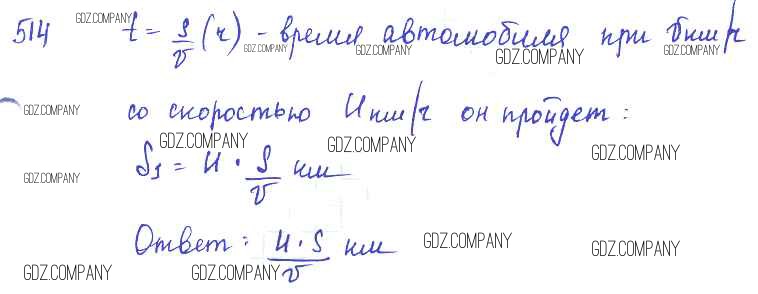 514 t = s/v (ч) - время автомобиля при v км/ч
со скоростью u км/ч он пройдет:
S₁ = u · s/v км
Ответ: u·s/v км
GDZ.COMPANY
GDZ.COMPANY
GDZ.COMPANY
GDZ.COMPANY
GDZ.COMPANY
GDZ.COMPANY
GDZ.COMPANY
GDZ.COMPANY
GDZ.COMPANY
GDZ.COMPANY
GDZ.COMPANY
GDZ.COMPANY
GDZ.COMPANY
GDZ.COMPANY